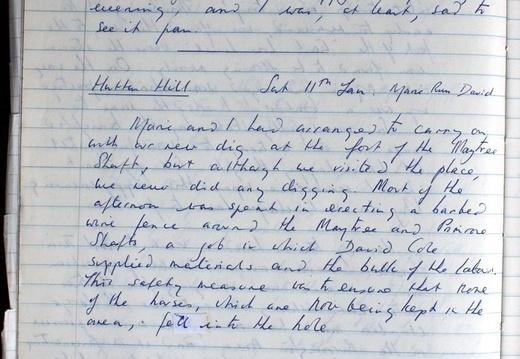 evening, and I was, at least, sad to
see it pass.
Hutton Hill Sat 11th Jan. Marie Ron David
Marie and I had arranged to carry on
with our new dig at the foot of the Maytree
Shaft, but although we visited the place,
we never did any digging. Most of the
afternoon was spent in erecting a barbed
wire fence around the Maytree and Primrose
Shafts, a job in which David Cole
supplied materials and the bulk of the labour.
This safety measure was to ensure that none
of the horses, which are now being kept in the
area, fell into the hole